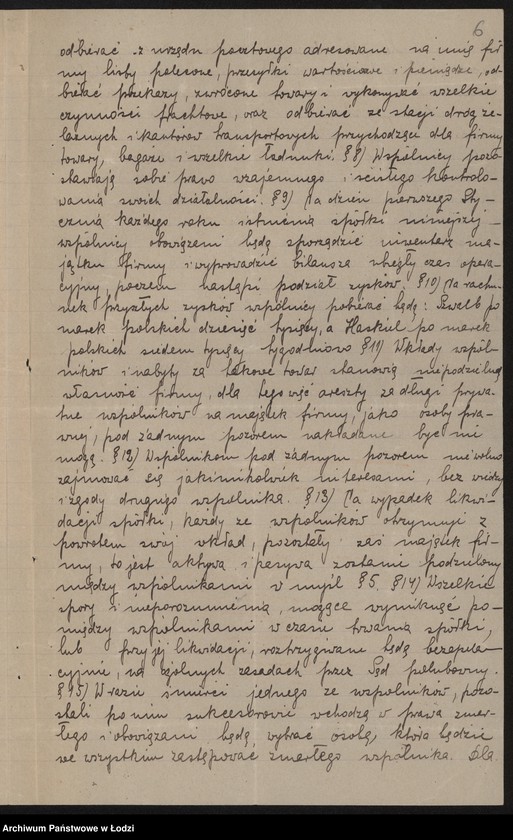 6
odbierać z urzędu pocztowego adresowane na imię fir
my listy polecone, przesyłki wartościowe i pieniądze, od-
bierać przekazy, zwrócone towary i wykonywać wszelkie
czynności frachtowe, oraz odbierać ze stacji dróg że-
laznych i kantorów transportowych przychodzące dla firmy
towary, bagaże i wszelkie ładunki. § 8) Wspólnicy pozo-
stawiają sobie prawo wzajemnego i ścisłego kontrolo-
wania swoich działalności. § 9) Na dzień pierwszego Sty-
cznia każdego roku istnienia spółki niniejszej
wspólnicy obowiązani będą sporządzić inwentarz ma-
jątku firmy i wyprowadzić bilans za ubiegły czas opera-
cyjny, poczem nastąpi podział zysków. § 10) Na rachu-
nek przyszłych zysków wspólnicy pobierać będą: po
marek polskich dziesięć tysięcy, a Haskiel po marek
polskich siedem tysięcy tygodniowo § 11) Wkłady wspól-
ników i nabyty za takowe towar stanowią niepodzielną
własność firmy, dla tego więc areszty za długi prywa-
tne wspólników na majątek firmy, jako osoby pra-
wnej, pod żadnym pozorem nakładane być nie
mogą. § 12) Wspólnikom pod żadnym pozorem nie wolno
zajmować się jakimikolwiek interesami, bez wiedzy
i zgody drugiego wspólnika. § 13) Na wypadek likwi-
dacji spółki, każdy ze wspólników otrzymuje z
powrotem swój wkład, pozostały zaś majątek fir-
my, to jest aktywa i pasywa zostanie podzielony
między wspólnikami w myśl § 5. § 14) Wszelkie
spory i nieporozumienia, mogące wyniknąć po-
między wspólnikami w czasie trwania spółki,
lub przy jej likwidacji, roztrzygane będą bezapela-
cyjnie, na ogólnych zasadach przez Sąd polubowny.
§ 15) W razie śmierci jednego ze wspólników, pozo-
stali po nim sukcesorowie wchodzą w prawa zmar-
łego i obowiązani będą wybrać osobę, która będzie
we wszystkim zastępować zmarłego wspólnika. Dla
Archiwum Państwowe w Łodzi